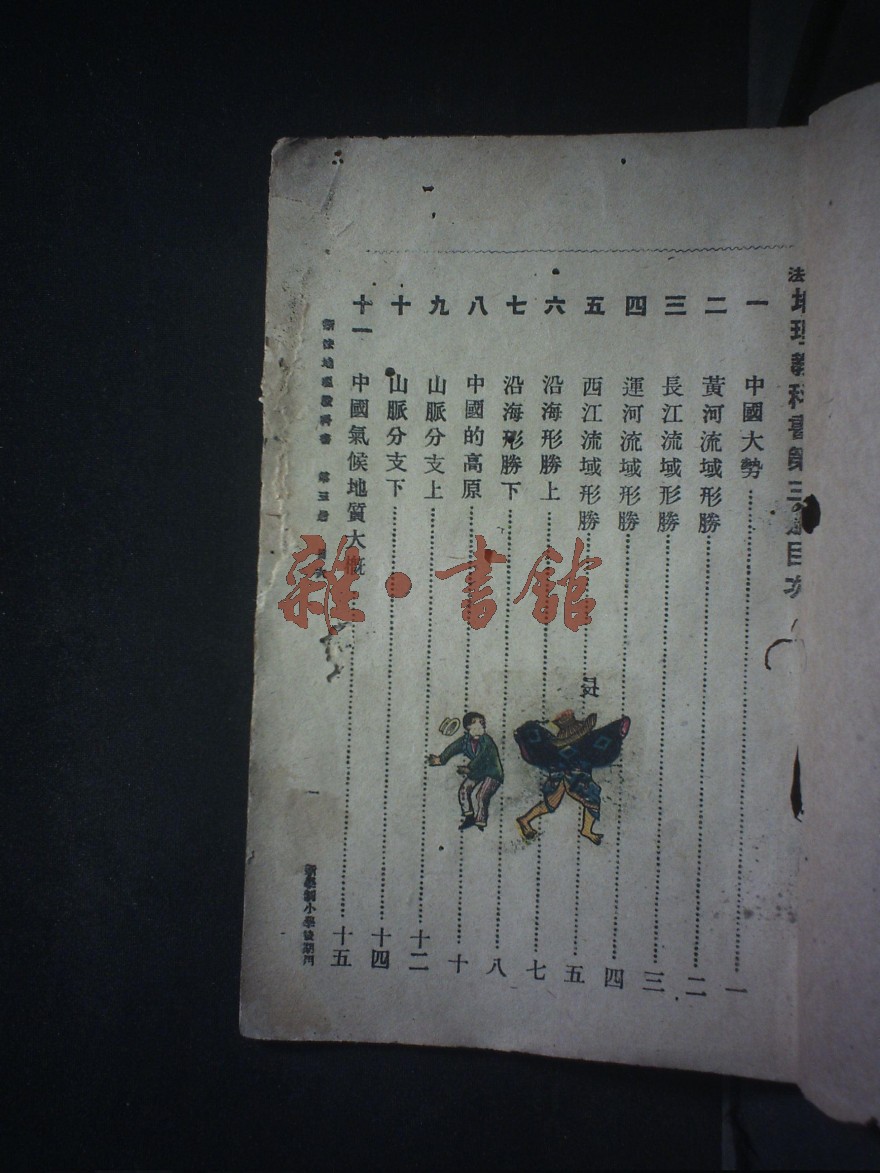 法地理教科書第三册目次
一 中國大勢 一
二 黃河流域形勝 二
三 長江流域形勝 三
四 運河流域形勝 四
五 西江流域形勝 五
六 沿海形勝上 七
七 沿海形勝下 八
八 中國的高原 十
九 山脈分支上 十二
十 山脈分支下 十四
十一 中國氣候地質大概 十五
新法地理教科書 第三册 目次
一
新學制小學後期用
雜·書館